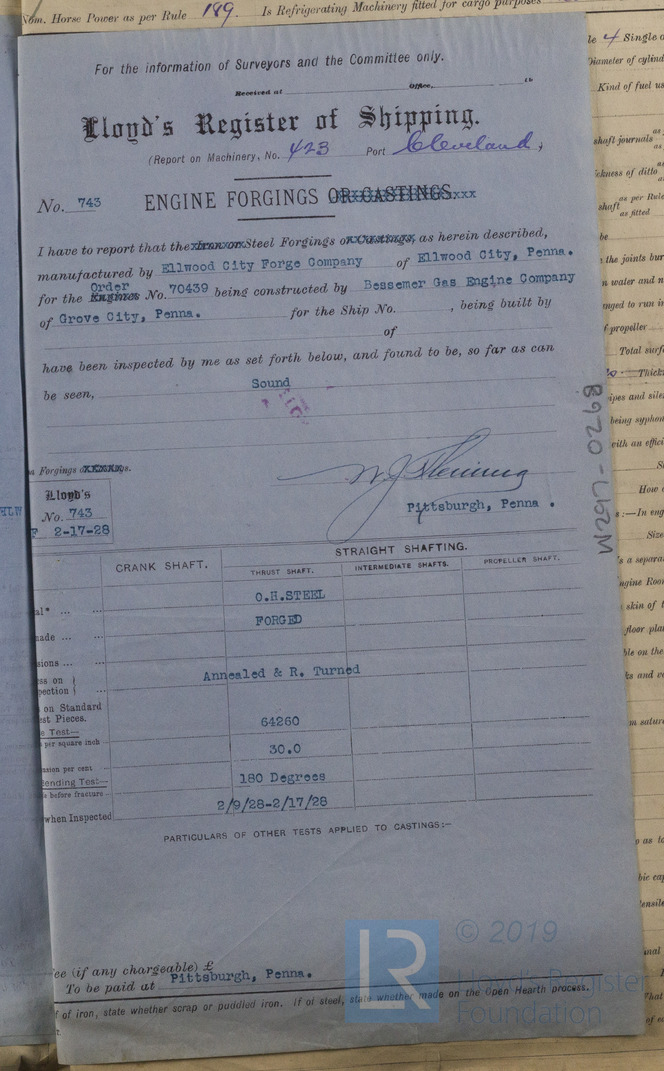 Nom. Horse Power as per Rule 189. Is Refrigerating Machinery fitted for cargo purposes
For the information of Surveyors and the Committee only.
Received at Office, 19
Lloyd's Register of Shipping.
(Report on Machinery, No. 423 Port Cleveland,
No. 743 ENGINE FORGINGS OR CASTINGS.xxx
I have to report that the Iron or Steel Forgings or Castings, as herein described,
manufactured by Ellwood City Forge Company of Ellwood City, Penna.
Order
for the Engines No. 70439 being constructed by Bessemer Gas Engine Company
of Grove City, Penna. for the Ship No. , being built by
of
have been inspected by me as set forth below, and found to be, so far as can
be seen, Sound
Forgings
W.J. Fleming
Pittsburgh, Penna.
Lloyd's
No. 743
2-17-28
M257-0298
CRANK SHAFT. STRAIGHT SHAFTING.
THRUST SHAFT. INTERMEDIATE SHAFTS. PROPELLER SHAFT.
O.H.STEEL
FORGED
Annealed & R. Turned
on Standard
est Pieces.
e Test—
per square inch 64260
nsion per cent 30.0
ending Test— 180 Degrees
before fracture
when Inspected 2/9/28-2/17/28
PARTICULARS OF OTHER TESTS APPLIED TO CASTINGS:—
ee (if any chargeable) £
To be paid at Pittsburgh, Penna.
f of iron, state whether scrap or puddled iron. If of steel, state whether made on the Open Hearth process.
LR
© 2019
Lloyd's Register
Foundation
4 Single o
Diameter of cylind
Kind of fuel us
shaft journals as
ckness of ditto
shaft as per Rule
as fitted
be
the joints bur
n water and n
nged to run i
propeller
Total surf
Thick
ipes and sile
being syphon
with an effici
How
:—In eng
Size
's a separa
ngine Roo
skin of t
floor pla
ble on the
ks and ve
m satur